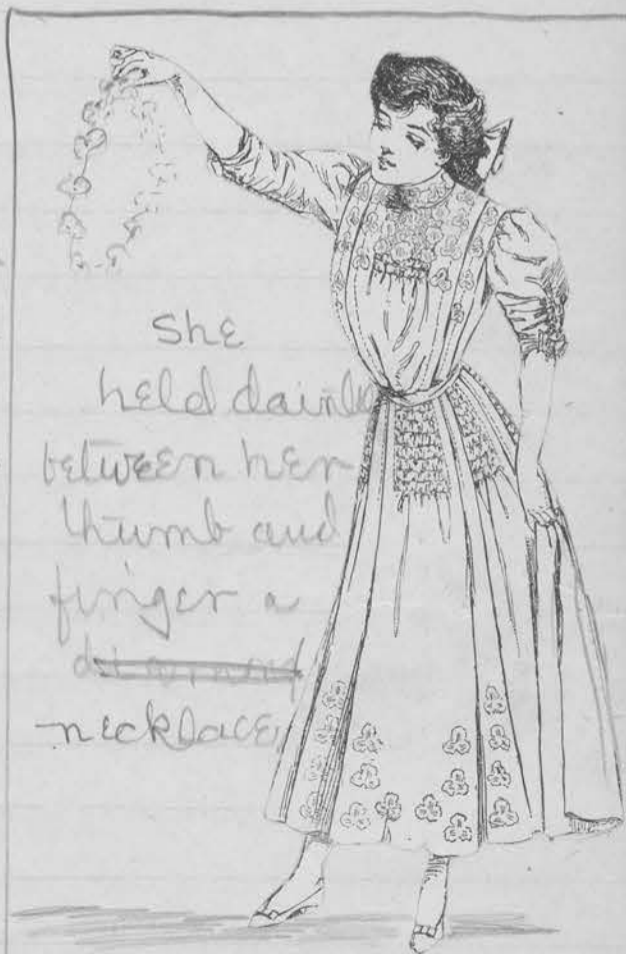 She
held dainti
between her
thumb and
finger a
necklace